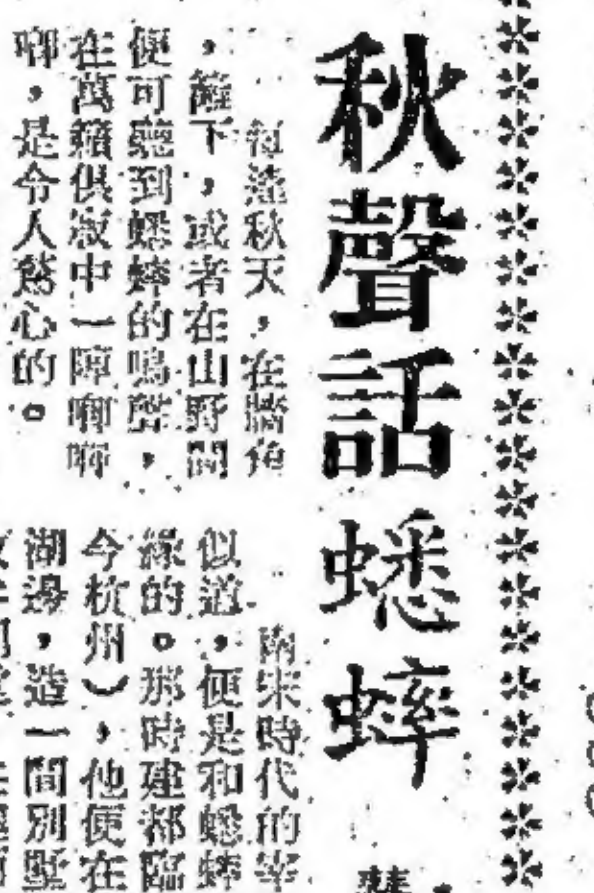 秋聲話蟋蟀
每逢秋天,在牆角
,籬下,或者在山野間
便可聽到蟋蟀的鳴聲,
在萬籟俱寂中一陣啊啊
啊,是令人愁心的。
南宋時代的宰
似道,便是和蟋蟀
緣的。那時建都臨
今杭州),他便在
湖邊,造一間別墅